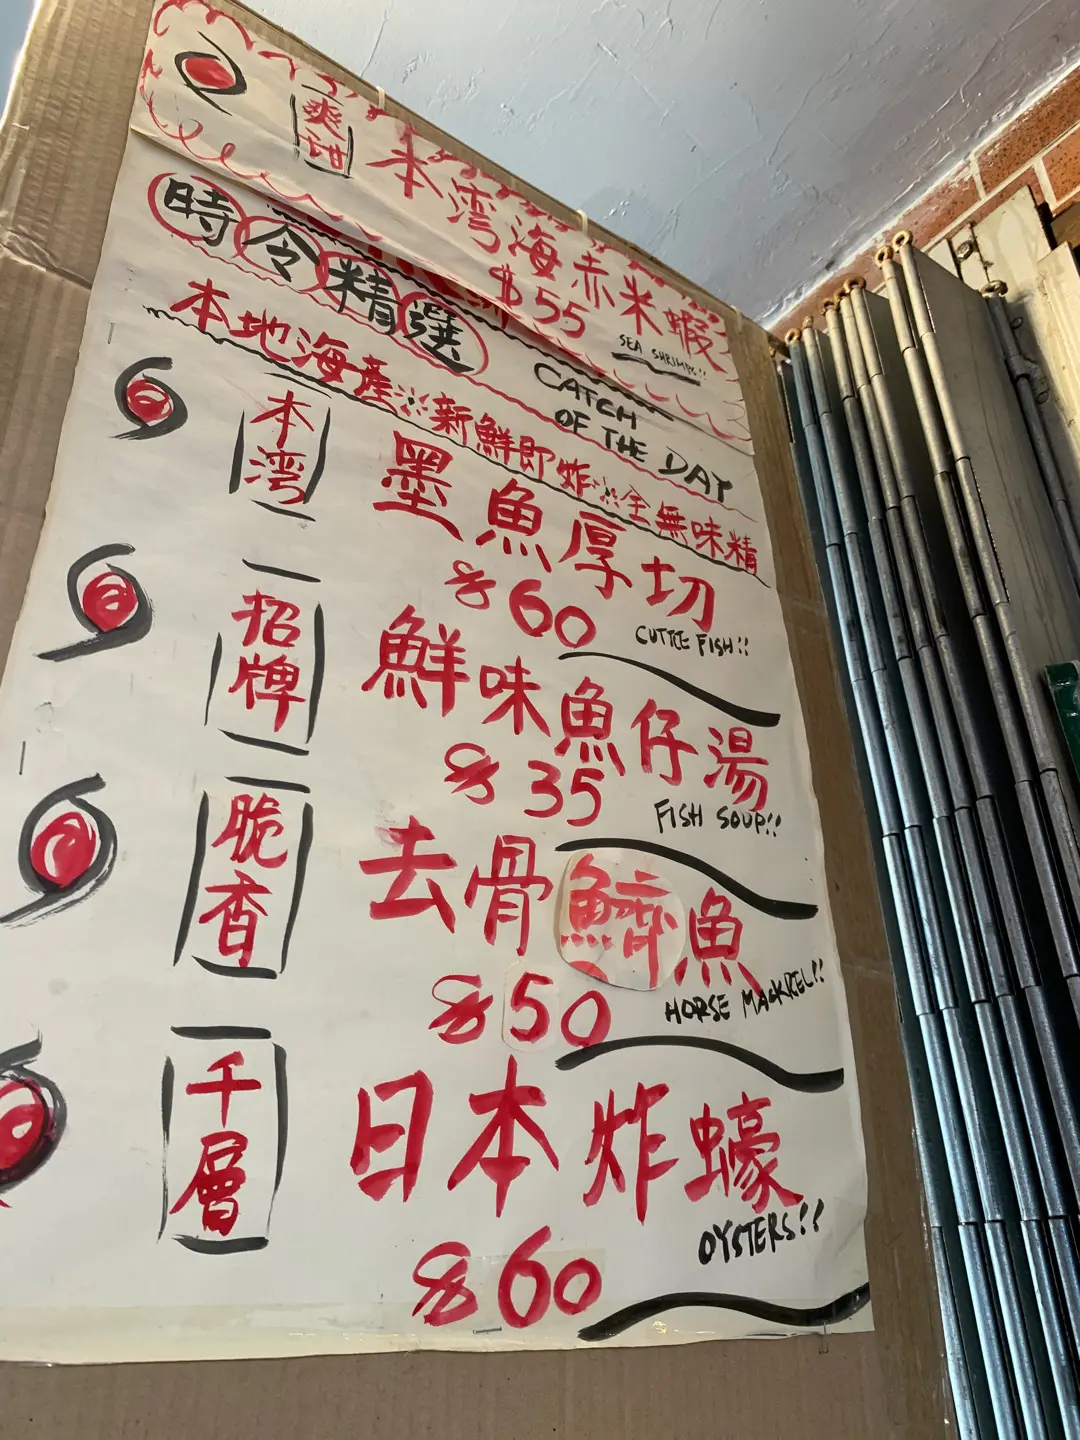 爽甜 本湾海赤米蝦
$55
SEA SHRIMPS!!
時令精選
CATCH
OF THE DAY
本地海產※新鮮即炸※全無味精
本湾 墨魚厚切
$60
CUTTLE FISH!!
招牌 鮮味魚仔湯
$35
FISH SOUP!!
脆香 去骨鱭魚
$50
HORSE MACKREL!!
千層 日本炸蠔
$60
OYSTERS!!